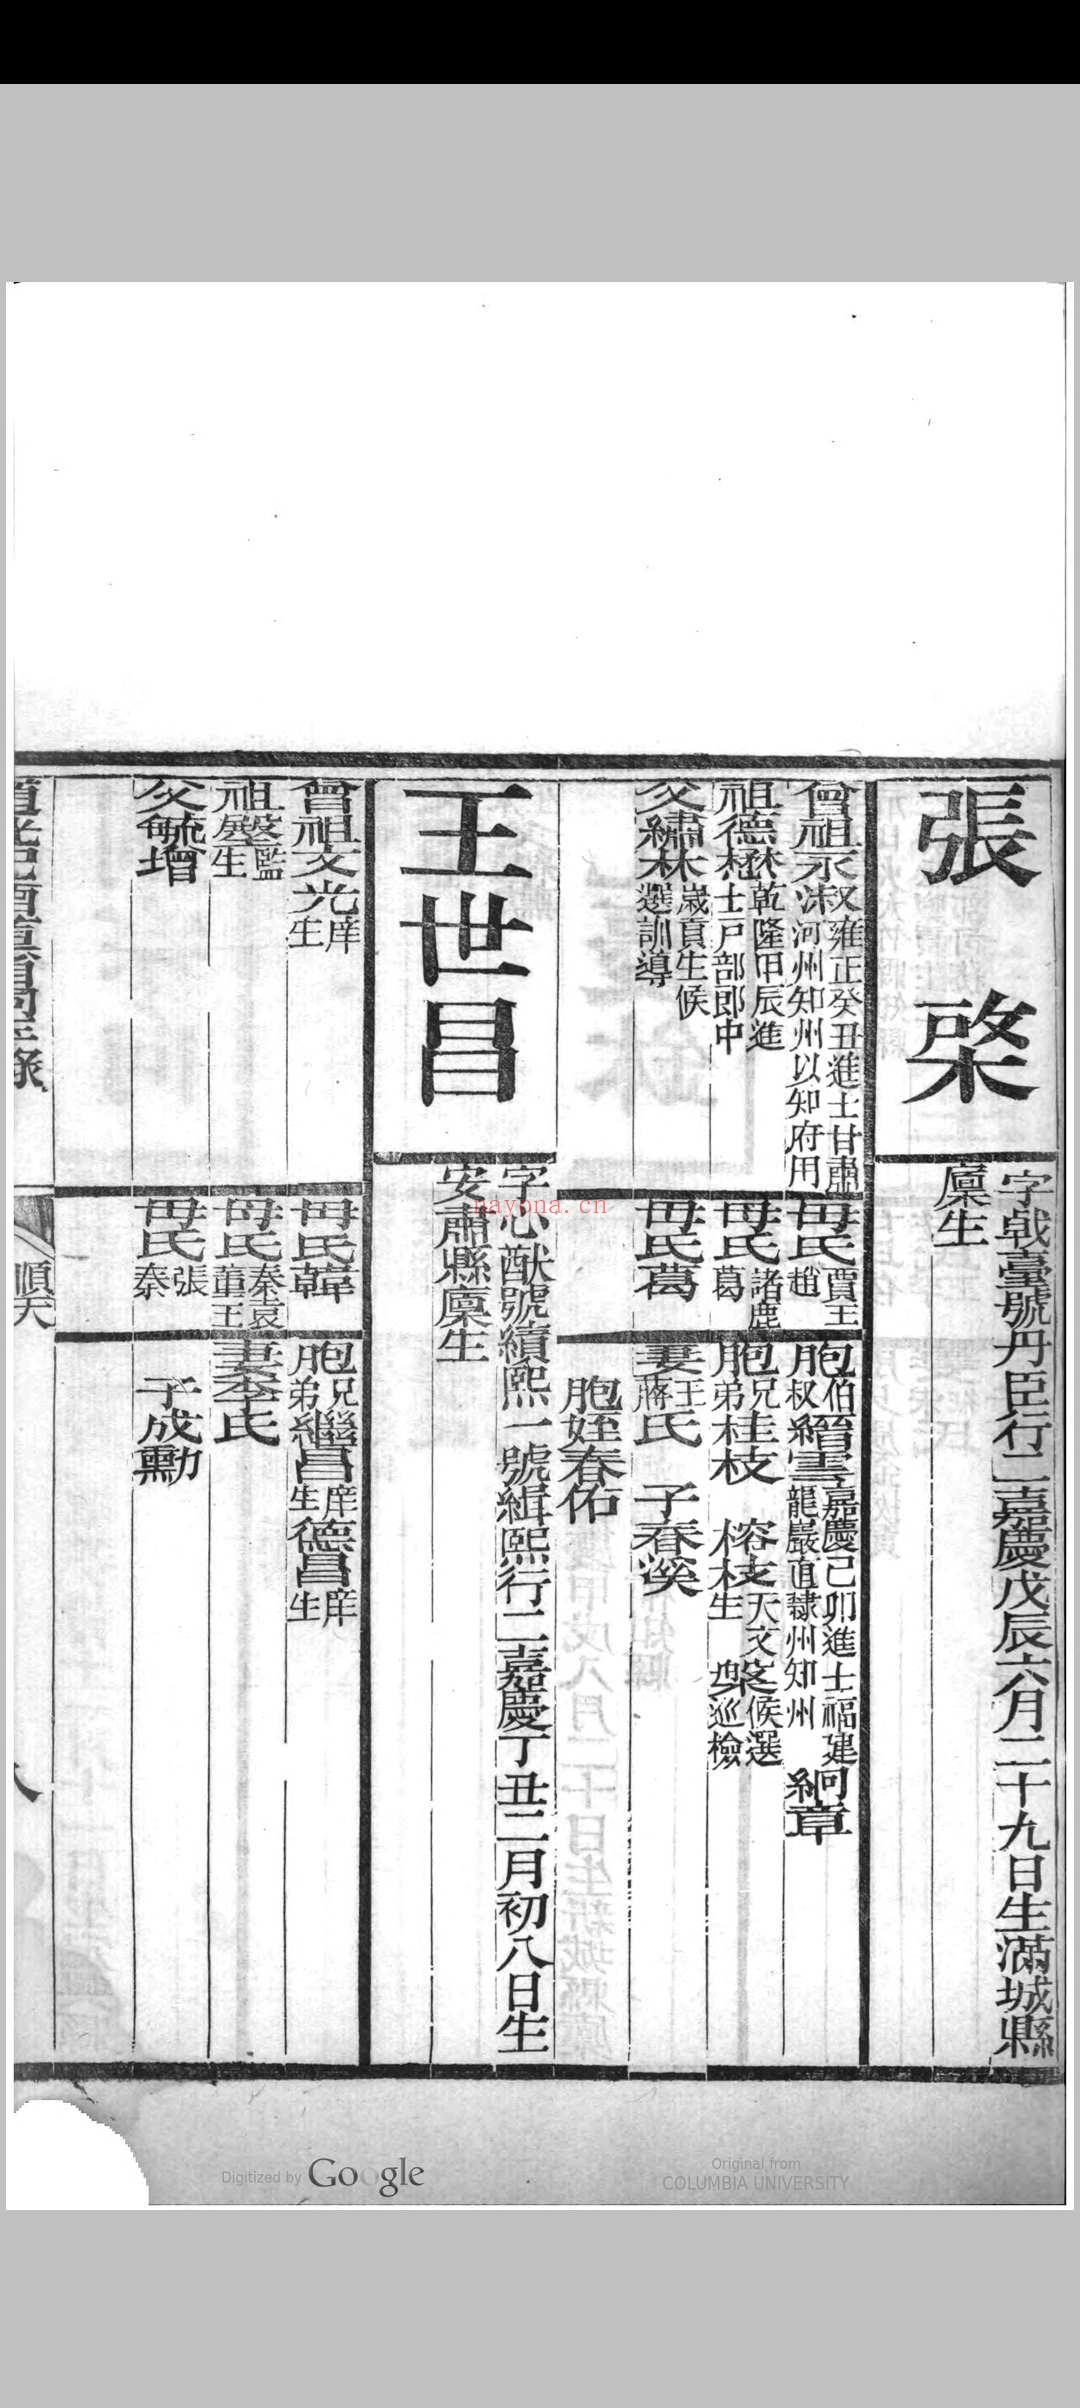 張 棨
字戟臺號丹臣行二嘉慶戊辰六月二十九日生滿城縣
廩生
曾祖永淑雍正癸丑進士甘肅
河州知州以知府用
母氏賈王
趙
胞伯
叔縉雲嘉慶己卯進士福建
龍巖直隸州知州
絅章
祖德懋乾隆甲辰進
士戶部郎中
母氏諸鹿
葛
胞兄
弟桂枝
榕枝天文
生
榘候選
巡檢
父繡林歲貢生候
選訓導
母氏葛
妻王
蔣氏
子春溪
胞姪春佑
王世昌
字心猷號績熙一號緝熙行二嘉慶丁丑二月初八日生
安肅縣廩生
曾祖文光庠
生
母氏韓
胞兄
弟繼昌庠
生
德昌庠
生
祖監
生
母氏秦袁
董王
妻李氏
父毓增
母氏張
秦
子成勳
道光己酉直省同年錄
順天
八
nayona.cn
Digitized by Google
Original from
COLUMBIA UNIVERSITY